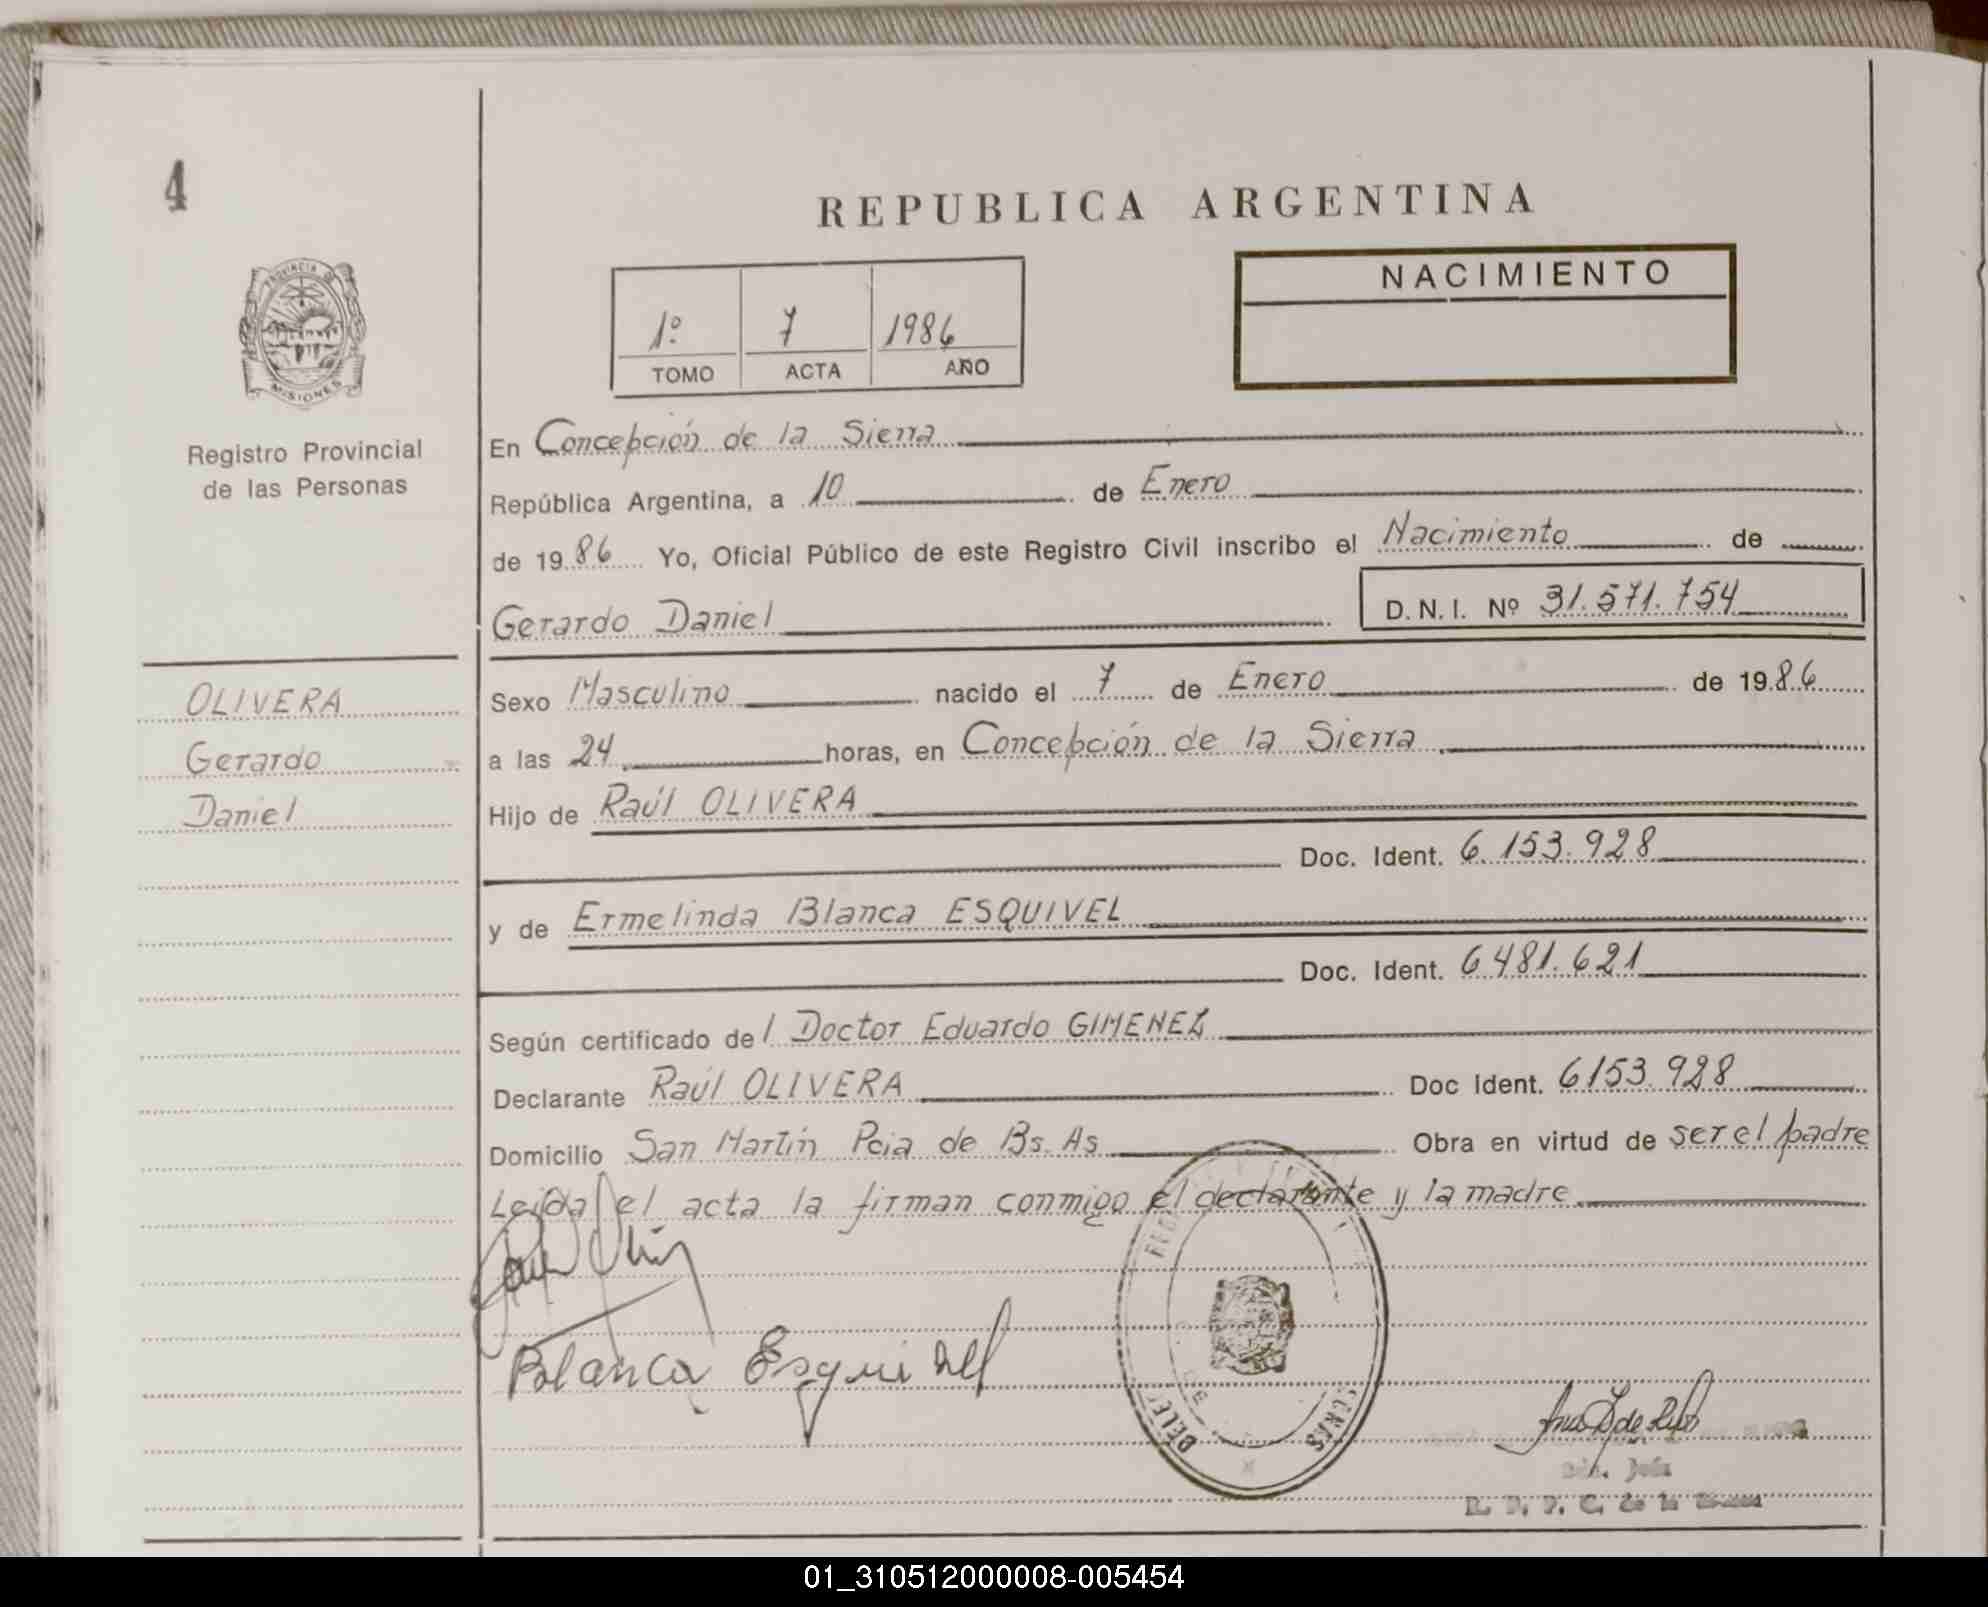 4
REPUBLICA ARGENTINA
PROVINCIA DE
MISIONES
Registro Provincial
de las Personas
1º 7 1986
TOMO ACTA AÑO
NACIMIENTO
En Concepción de la Sierra
República Argentina, a 10 de Enero
de 19 86 Yo, Oficial Público de este Registro Civil inscribo el Nacimiento de
Gerardo Daniel D. N. I. Nº 31.571.754
OLIVERA
Gerardo
Daniel
Sexo Masculino nacido el 7 de Enero de 19 86
a las 24 horas, en Concepción de la Sierra
Hijo de Raúl OLIVERA
Doc. Ident. 6.153.928
y de Ermelinda Blanca ESQUIVEL
Doc. Ident. 6.481.621
Según certificado de l Doctor Eduardo GIMENEZ
Declarante Raúl OLIVERA Doc Ident. 6153.928
Domicilio San Martín Pcia de Bs. As Obra en virtud de ser el padre
Leida el acta la firman conmigo el declarante y la madre
Blanca Esquivel
R. P. P. C. de la
01_310512000008-005454